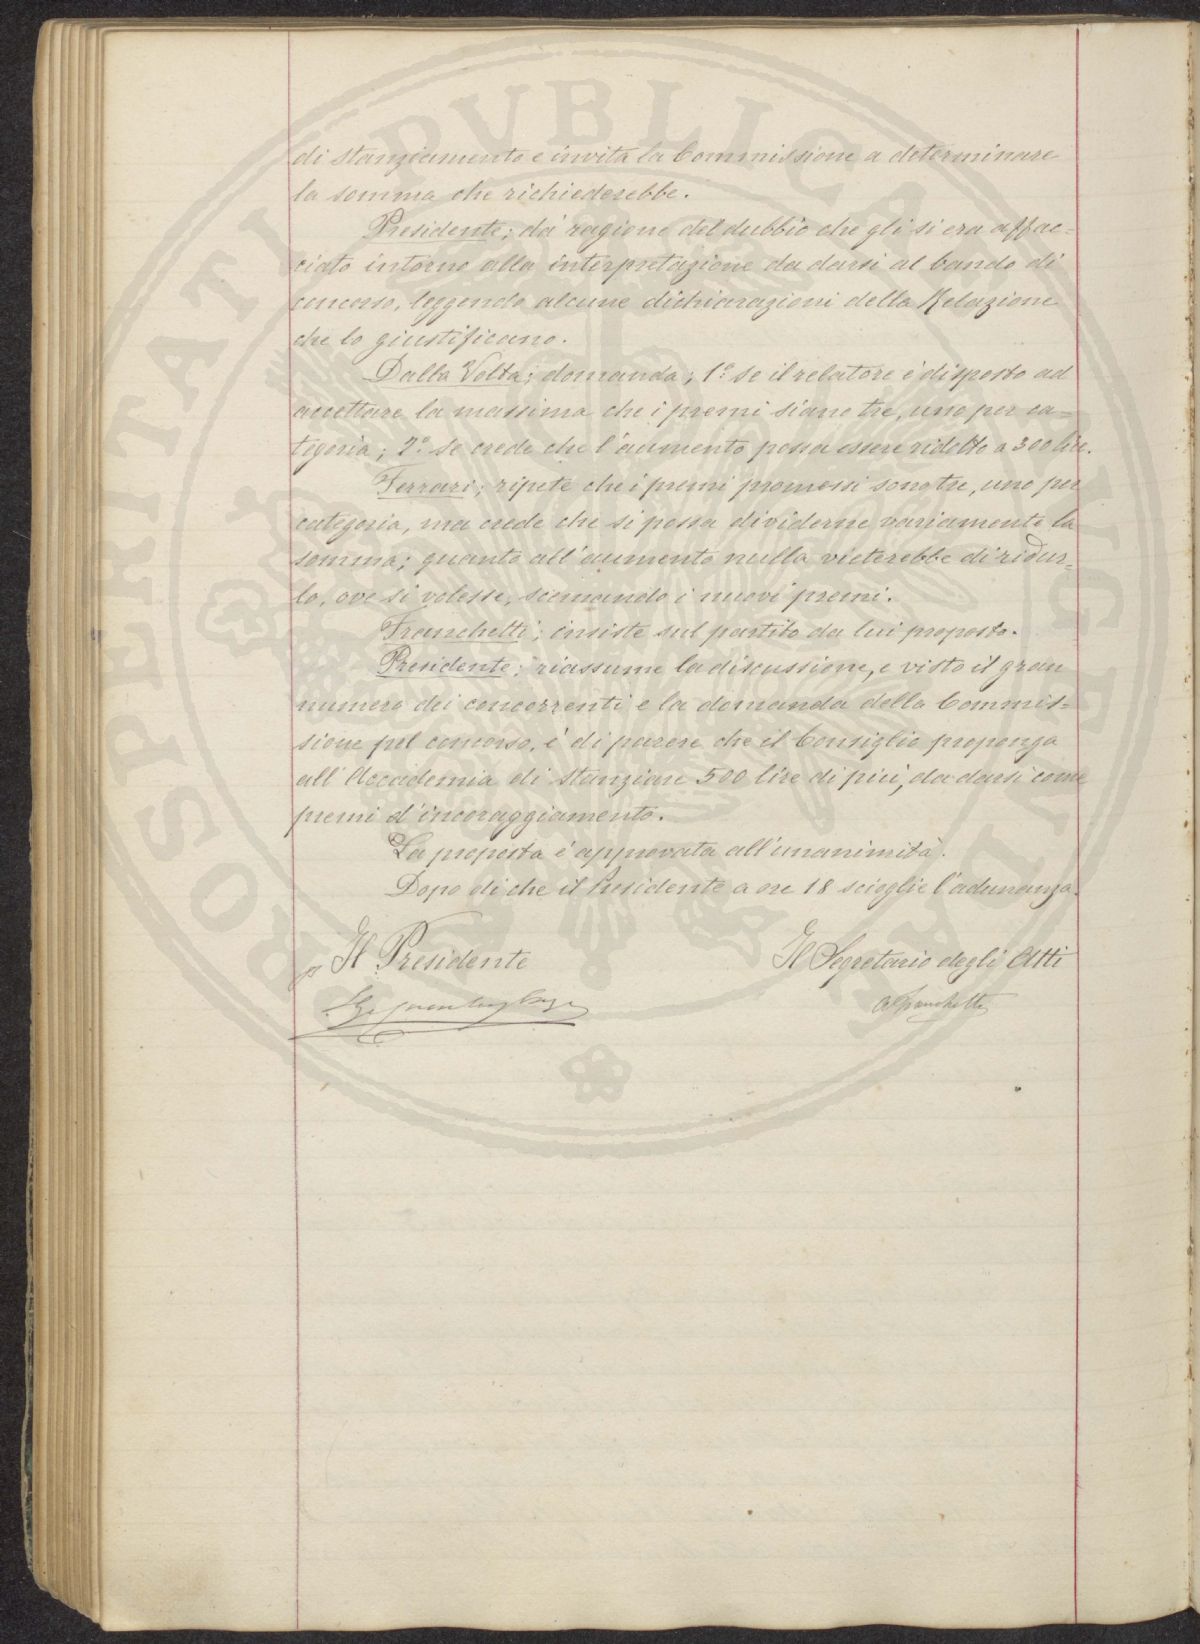 di stanziamento e invita la Commissione a determinare
la somma che richiederebbe.
Presidente; dà ragione del dubbio che gli si era affac=
ciato intorno alla interpretazione da darsi al bando di
concorso, leggendo alcune dichiarazioni della Relazione
che lo giustificano.
Dalla Volta; domanda; 1º se il relatore è disposto ad
accettare la massima che i premi siano tre, uno per ca=
tegoria; 2º se crede che l'aumento possa essere ridotto a 300 lire.
Ferrari; ripete che i premi promessi sono tre, uno per
categoria, ma crede che si possa dividerne variamente la
somma; quanto all'aumento nulla vieterebbe di ridur=
lo, ove si volesse, scemando i nuovi premi.
Franchetti; insiste sul partito da lui proposto.
Presidente; riassume la discussione, e visto il gran
numero dei concorrenti e la domanda della Commis=
sione pel concorso, è di parere che il Consiglio proponga
all'Accademia di stanziare 500 lire di più, da darsi come
premi d'incoraggiamento.
La proposta è approvata all'unanimità.
Dopo di che il Presidente a ore 18 scioglie l'adunanza.
p Il Presidente
Il Segretario degli Atti
A Franchetti
PROSPERITATI PVBLICAE AVGENDAE